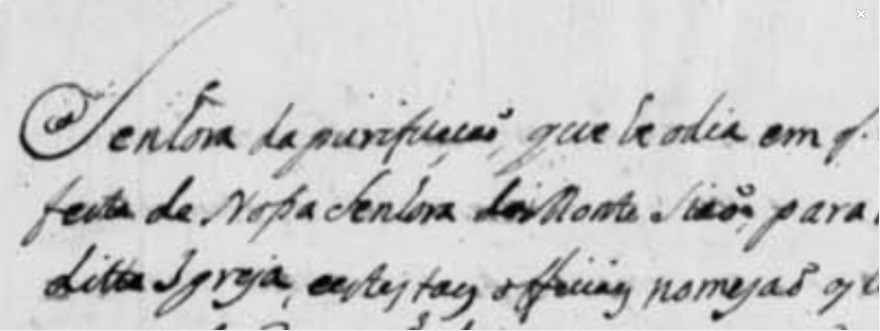 Senhora da purificaçaõ, que he o dia em q.
festa de Nossa Senhora do Monte Siaõ, para
ditta Igreja, e estes taes officiaes nomejaõ os